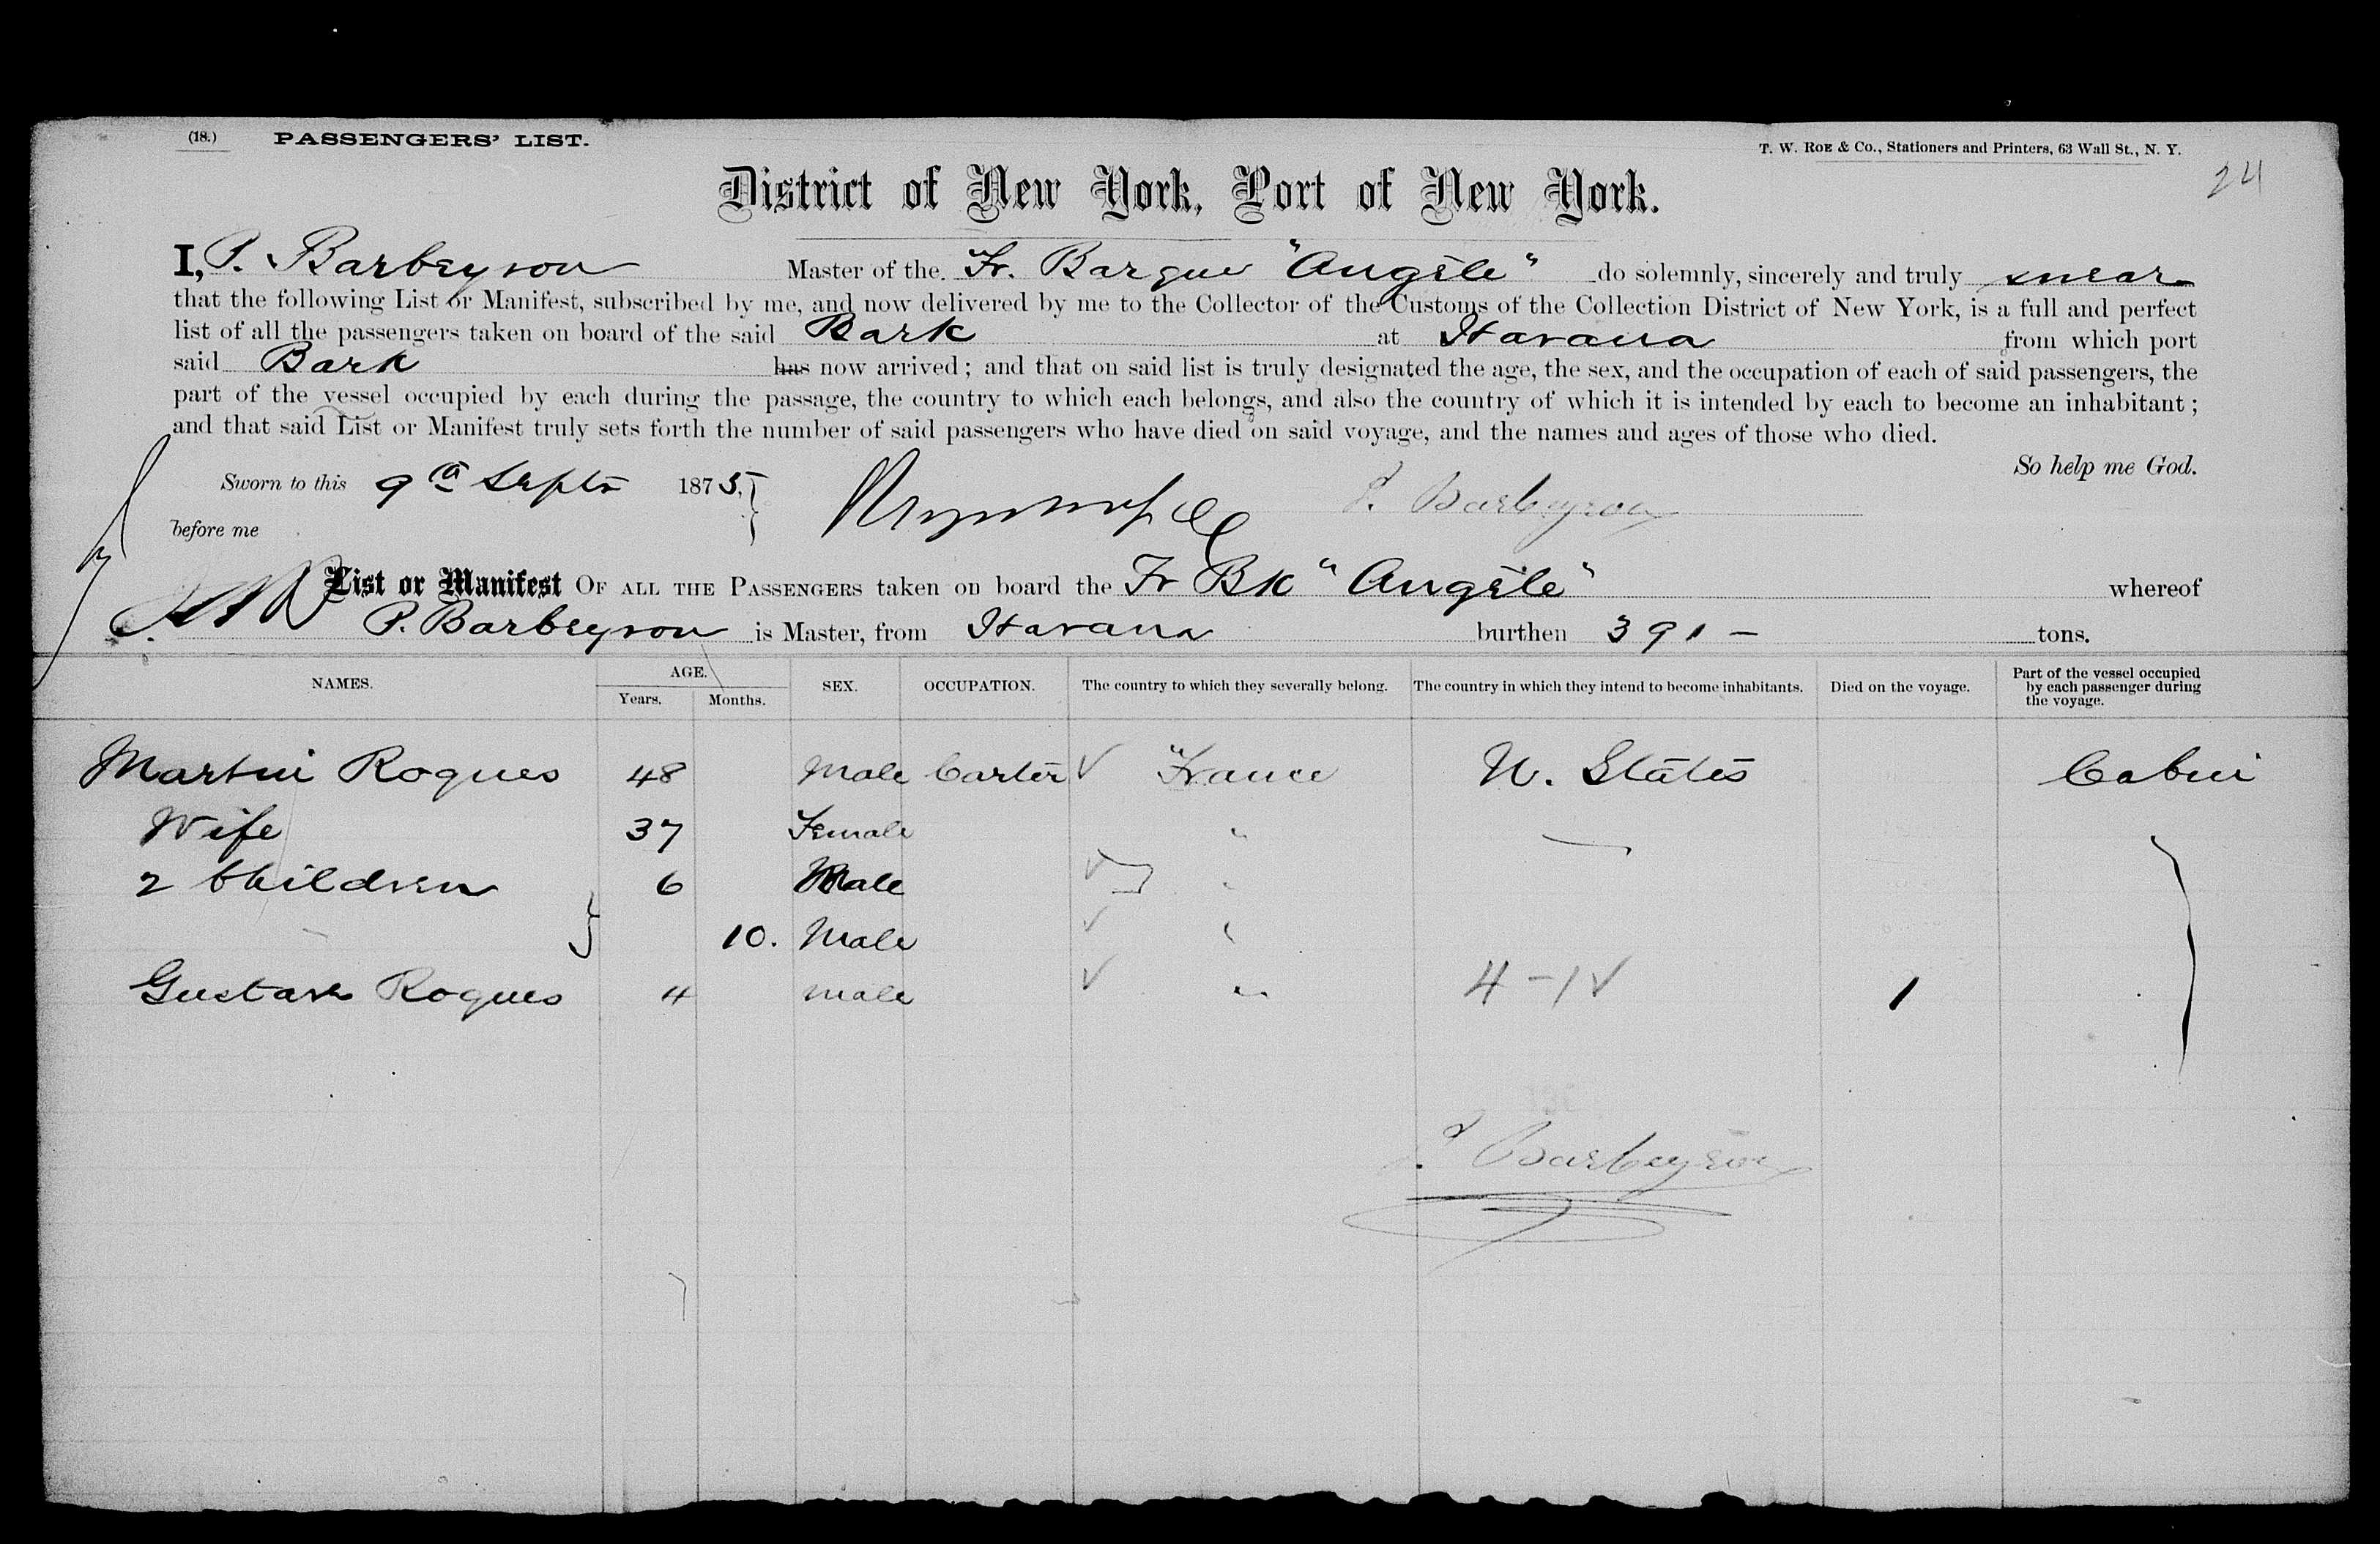 (18.) PASSENGERS' LIST. T. W. Roe & Co., Stationers and Printers, 63 Wall St., N. Y.
24
District of New York, Port of New York.
I, P. Barbeyron Master of the Fr. Barque "Angèle" do solemnly, sincerely and truly swear
that the following List or Manifest, subscribed by me, and now delivered by me to the Collector of the Customs of the Collection District of New York, is a full and perfect
list of all the passengers taken on board of the said Bark at Havana from which port
said Bark has now arrived; and that on said list is truly designated the age, the sex, and the occupation of each of said passengers, the
part of the vessel occupied by each during the passage, the country to which each belongs, and also the country of which it is intended by each to become an inhabitant;
and that said List or Manifest truly sets forth the number of said passengers who have died on said voyage, and the names and ages of those who died.
So help me God.
Sworn to this 9th Septr 1875, P. Barbeyron
before me
List or Manifest Of all the Passengers taken on board the Fr Bk "Angèle" whereof
P. Barbeyron is Master, from Havana burthen 391 — tons.
NAMES. AGE. Years. Months. SEX. OCCUPATION. The country to which they severally belong. The country in which they intend to become inhabitants. Died on the voyage. Part of the vessel occupied by each passenger during the voyage.
Martin Roques 48 Male Carter ✓ France U. States Cabin
Wife 37 Female "
2 Children 6 Male ✓ "
10. Male ✓ "
Gustave Roques 4 male ✓ " 4-1 ✓ 1
P. Barbeyron